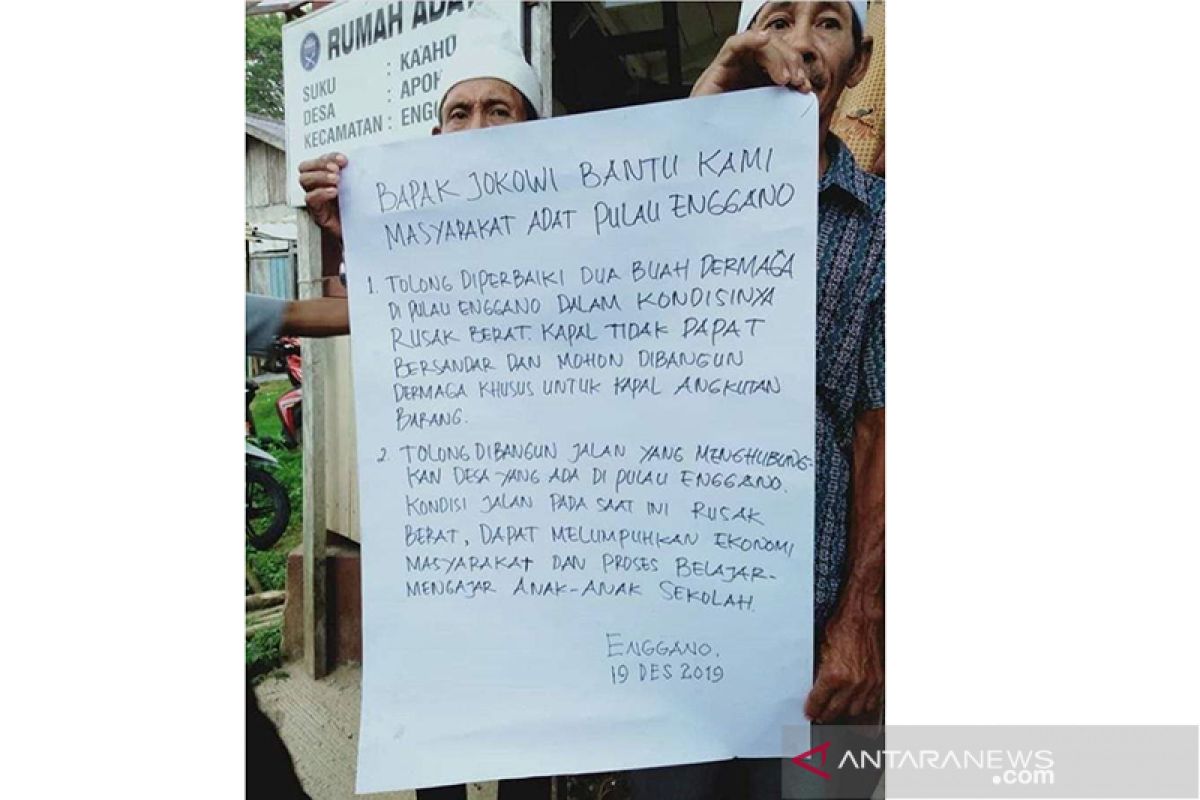 RUMAH ADAT
SUKU : KAAHO
DESA : APOH
KECAMATAN : ENGG
BAPAK JOKOWI BANTU KAMI
MASYARAKAT ADAT PULAU ENGGANO
1. TOLONG DIPERBAIKI DUA BUAH DERMAGA
DI PULAU ENGGANO DALAM KONDISINYA
RUSAK BERAT. KAPAL TIDAK DAPAT
BERSANDAR DAN MOHON DIBANGUN
DERMAGA KHUSUS UNTUK KAPAL ANGKUTAN
BARANG.
2. TOLONG DIBANGUN JALAN YANG MENGHUBUNG-
KAN DESA YANG ADA DI PULAU ENGGANO.
KONDISI JALAN PADA SAAT INI RUSAK
BERAT, DAPAT MELUMPUHKAN EKONOMI
MASYARAKAT DAN PROSES BELAJAR-
MENGAJAR ANAK-ANAK SEKOLAH.
ENGGANO,
19 DES 2019
ANTARANEWS
.com